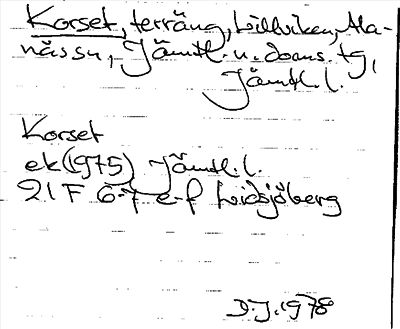 Korset, terräng, Lillviken, Ala-
nässn, Jämtl. n. doms. tg,
Jämtl. l.
Korset
ek (1975) Jämtl. l.
21 F 6-7 e-f Lidsjöberg
D.J. 1978